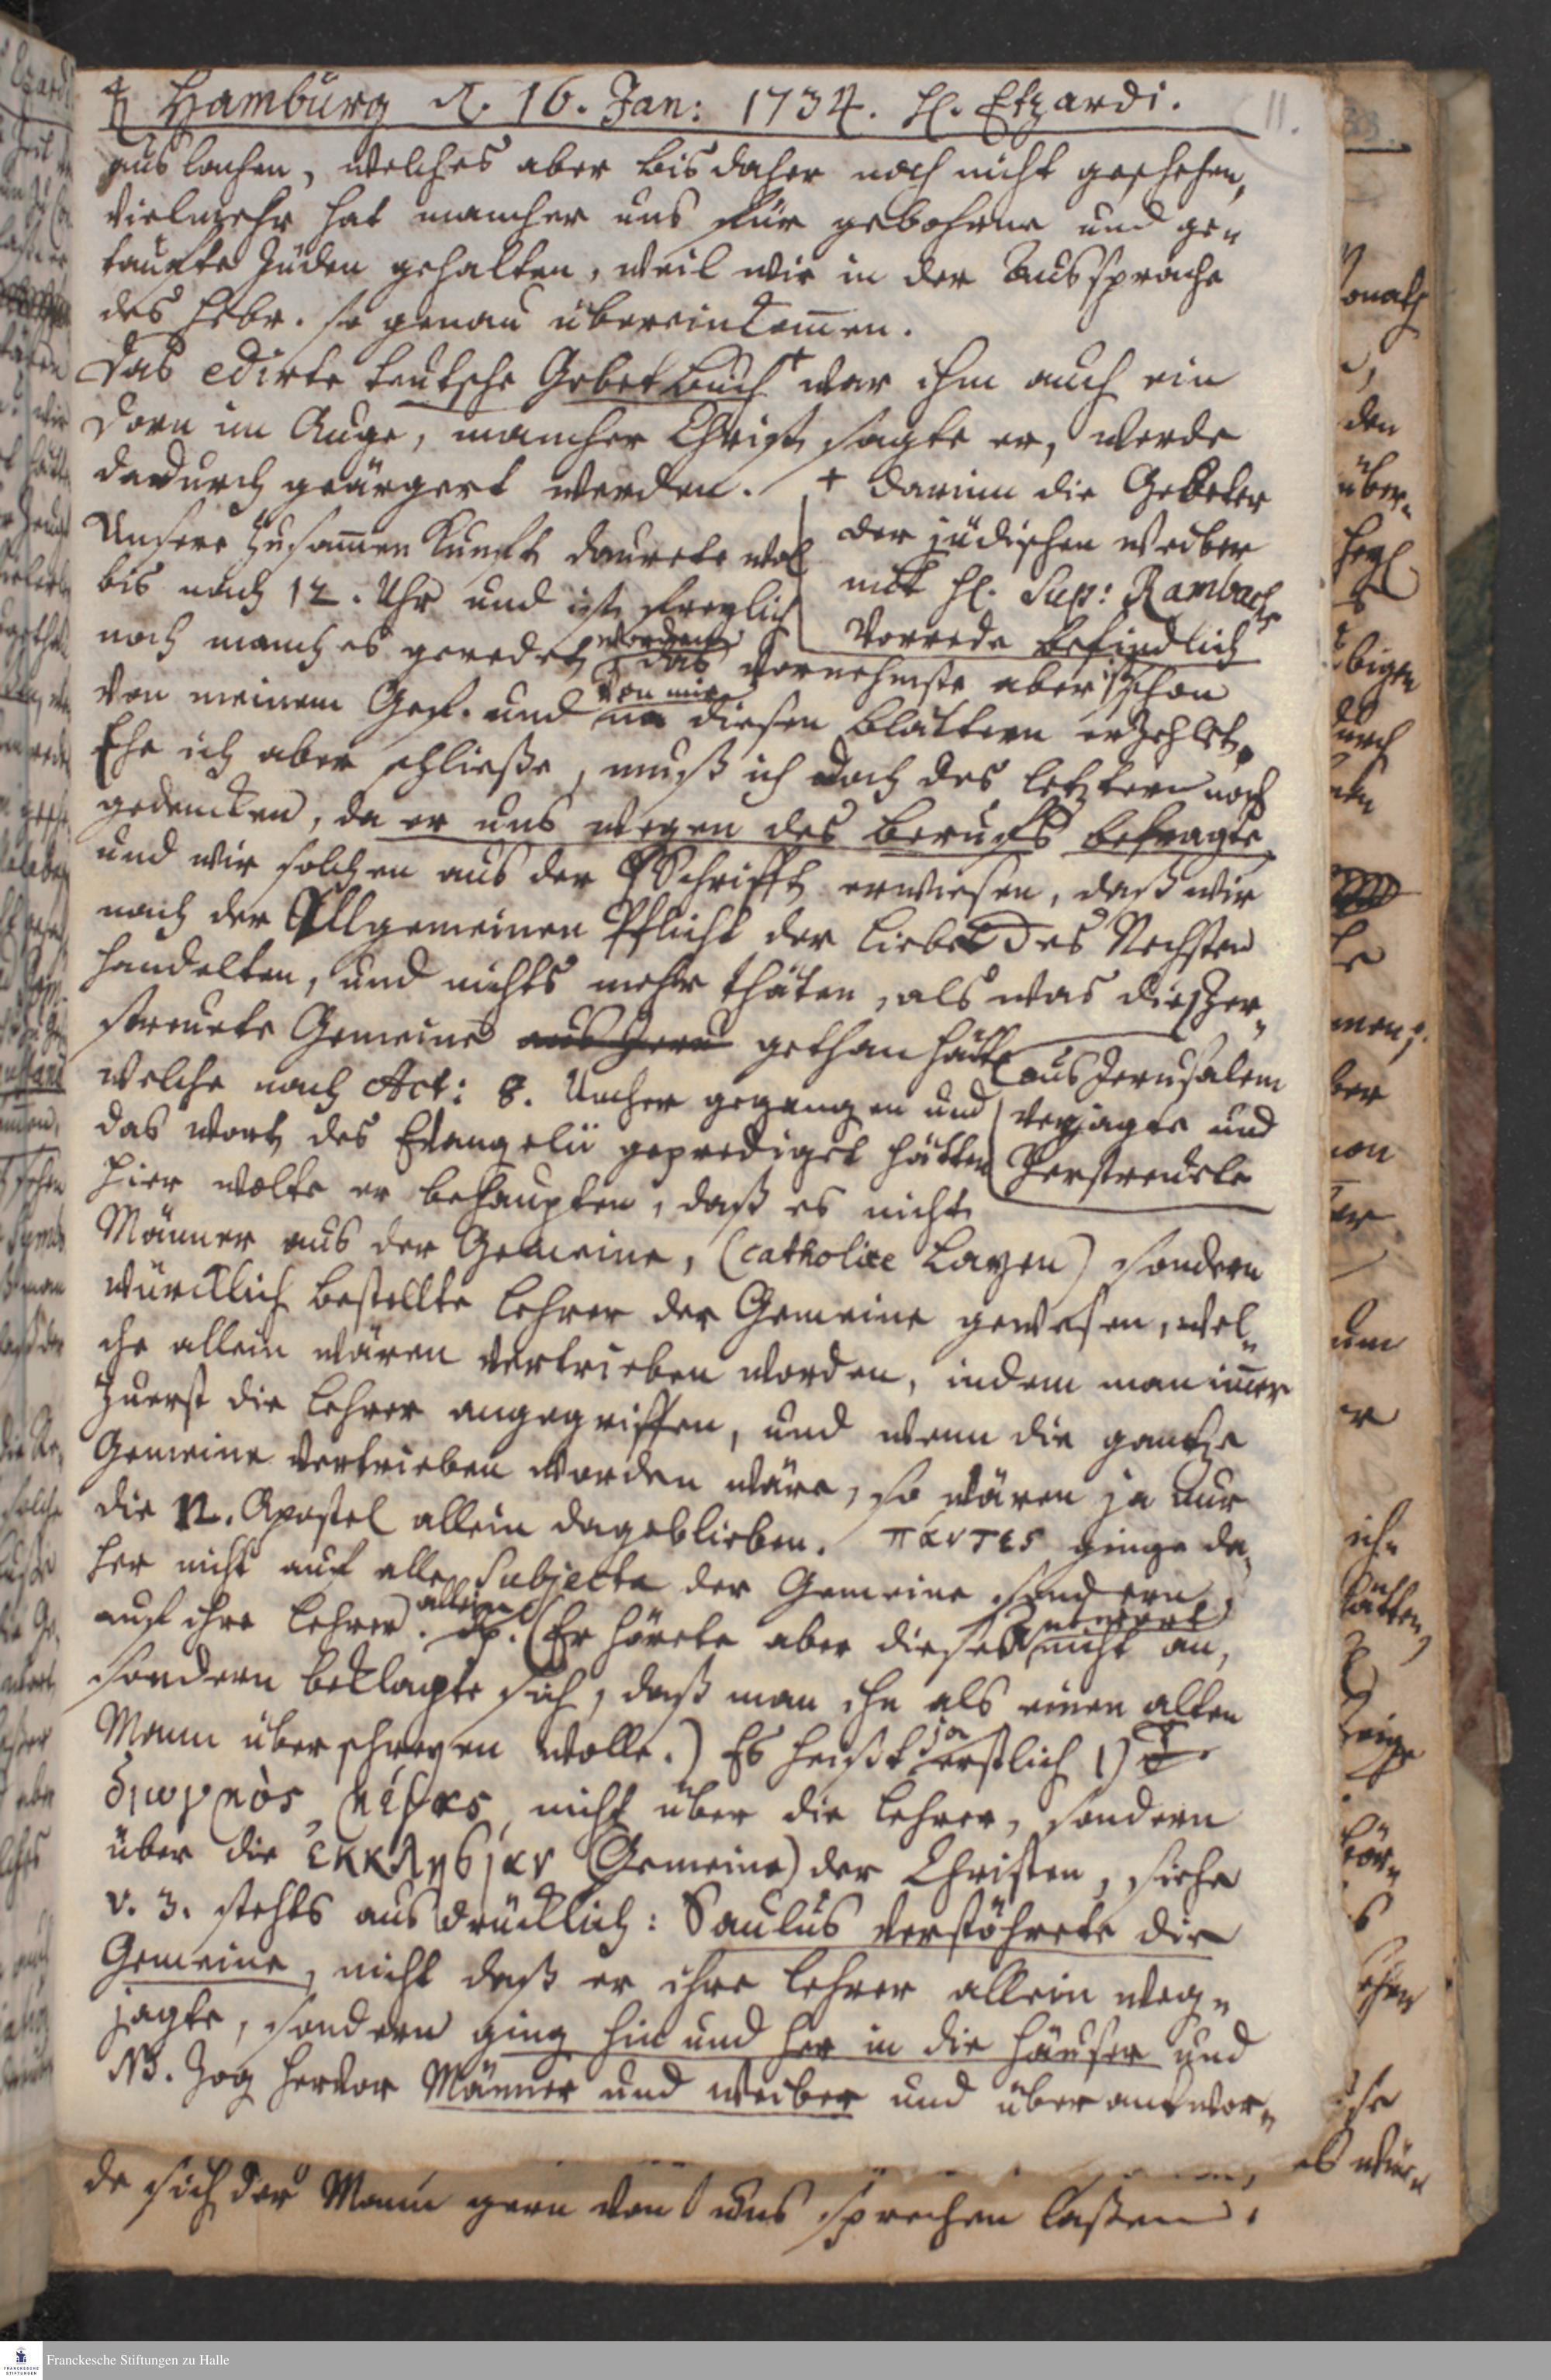 ♃ Hamburg d. 16. Jan: 1734. H. Etzardi. 11.
auslachen, welches aber bis daher noch nicht geschehen,
vielmehr hat mancher uns für gebohrne und ge-
taufte Juden gehalten, weil wir in der Aussprache
des Hebr. so genau übereinkom̄en.
Das edirte teutsche Gebetbuch + war ihm auch ein
Dorn im Auge, mancher Christ, sagte er, werde
dadurch geärgert werden.
+ darinn die Gebeter
der jüdischen Weiber
mit H. Sup: Rambachs
Vorrede befindlich
Unsere Zusam̄enkunft daurete wol
bis nach 12. Uhr und ist freylich
noch manches geredet worden, das vornehmste aber ist schon
von meinem Gef. und von mir in diesen Blättern erzehlet.
Ehe ich aber schließe, muß ich doch des letztern noch
gedencken, da er uns wegen des Berufs befragte,
und wir solchen aus der H Schrifft erwiesen, daß wir
nach der Allgemeinen Pflicht der Liebe des Nechsten
handelten, und nichts mehr thäten, als was die zer-
streuete Gemeine aus Jeru gethan hätte
aus Jerusalem
verjagte und
Zerstreuete
welche nach Act: 8. umher gegangen und
das Wort des Evangelii geprediget hätten
hier wolte er behaupten, daß es nicht
Männer aus der Gemeine, (catholice Layen) sondern
würcklich bestellte Lehrer der Gemeine gewesen, wel-
che allein wären vertrieben worden, indem man im̄er
zuerst die Lehrer angegriffen, und wenn die gantze
Gemeine vertrieben worden wäre, so wären ja nur
die 12. Apostel allein dageblieben. πάντες ginge da-
her nicht auf alle Subjecta der Gemeine sondern
auf ihre Lehrer allein. (Er hörete aber diese Antwort nicht an,
sondern beklagte sich, daß man ihn als einen alten
Mann überschreyen wolle.) Es heißt ja erstlich 1)
διωγμὸς μέγας nicht über die Lehrer, sondern
über die ἐκκλησίαν (Gemeine) der Christen, siehe
v. 3. stehts ausdrücklich: Saulus verstöhrete die
Gemeine, nicht daß er ihre Lehrer allein weg-
jagte, sondern ging hin und her in die Häuser und
NB. zog hervor Männer und Weiber und überantwor-
de sich der Mann gern von uns sprechen laßen.
Franckesche Stiftungen zu Halle